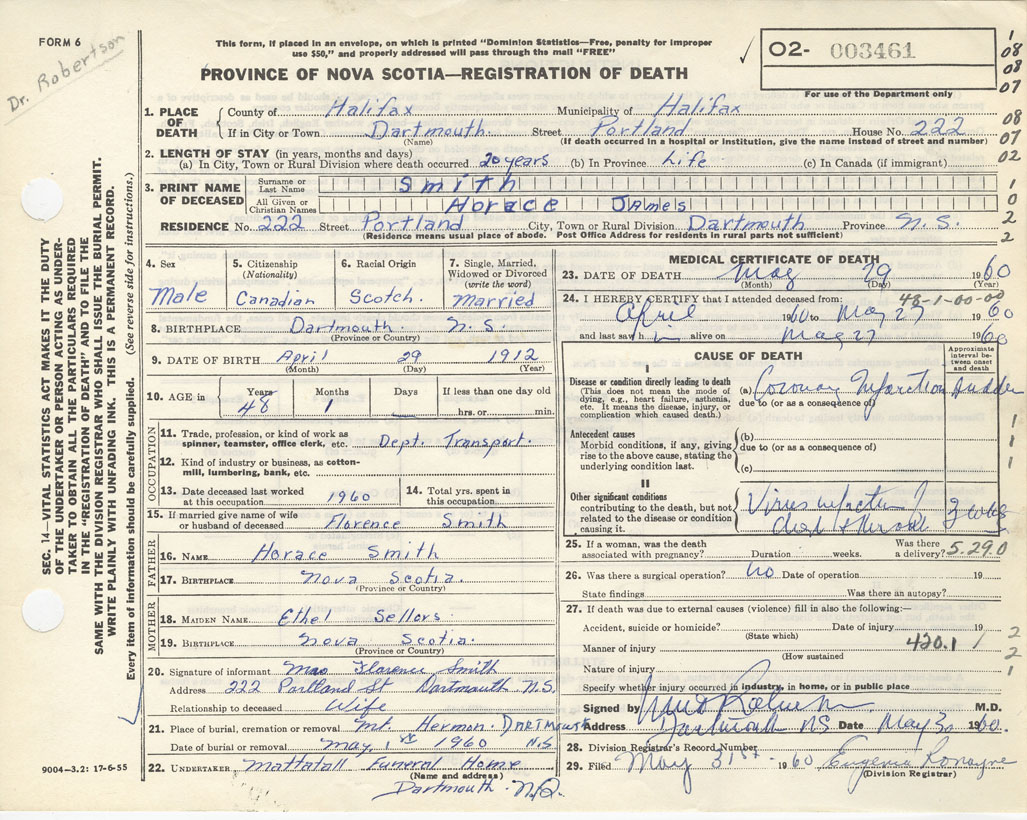 FORM 6
Dr. Robertson
This form, if placed in an envelope, on which is printed "Dominion Statistics—Free, penalty for improper
use $50," and properly addressed will pass through the mail "FREE"
PROVINCE OF NOVA SCOTIA—REGISTRATION OF DEATH
O2- 003461
For use of the Department only
1
08
08
07
08
07
02
1
0
2
2
1. PLACE OF DEATH
County of Halifax Municipality of Halifax
If in City or Town Dartmouth Street Portland House No. 222
(Name) (If death occurred in a hospital or institution, give the name instead of street and number)
2. LENGTH OF STAY (in years, months and days)
(a) In City, Town or Rural Division where death occurred 20 years (b) In Province Life (c) In Canada (if immigrant)
3. PRINT NAME OF DECEASED
Surname or Last Name Smith
All Given or Christian Names Horace James
RESIDENCE No. 222 Street Portland City, Town or Rural Division Dartmouth Province N.S.
(Residence means usual place of abode. Post Office Address for residents in rural parts not sufficient)
4. Sex Male
5. Citizenship (Nationality) Canadian
6. Racial Origin Scotch.
7. Single, Married, Widowed or Divorced (write the word) Married
8. BIRTHPLACE Dartmouth N.S.
(Province or Country)
9. DATE OF BIRTH April 29 1912
(Month) (Day) (Year)
10. AGE in Years 48 Months 1 Days — If less than one day old hrs. or min.
OCCUPATION
11. Trade, profession, or kind of work as spinner, teamster, office clerk, etc. Dept. Transport.
12. Kind of industry or business, as cotton-mill, lumbering, bank, etc.
13. Date deceased last worked at this occupation. 1960
14. Total yrs. spent in this occupation.
15. If married give name of wife or husband of deceased Florence Smith
FATHER
16. NAME Horace Smith
17. BIRTHPLACE Nova Scotia.
(Province or Country)
MOTHER
18. MAIDEN NAME Ethel Sellors
19. BIRTHPLACE Nova Scotia.
(Province or Country)
20. Signature of informant Mrs Florence Smith
Address 222 Portland St Dartmouth N.S.
Relationship to deceased Wife
21. Place of burial, cremation or removal Mt. Hermon DARTMOUTH
Date of burial or removal May 1st 1960 N.S
22. UNDERTAKER Mattatall Funeral Home
(Name and address)
Dartmouth
MEDICAL CERTIFICATE OF DEATH
23. DATE OF DEATH May 29 1960
(Month) (Day) (Year)
48-1-00-00
24. I HEREBY CERTIFY that I attended deceased from:
April 1960 to May 27 1960
and last saw him alive on May 27 1960
CAUSE OF DEATH
Approximate interval between onset and death
I
Disease or condition directly leading to death
(This does not mean the mode of dying, e.g., heart failure, asthenia, etc. It means the disease, injury, or complication which caused death.)
(a) Coronary Infarction Sudden
due to (or as a consequence of)
Antecedent causes
Morbid conditions, if any, giving rise to the above cause, stating the underlying condition last.
(b)
due to (or as a consequence of)
(c)
II
Other significant conditions
contributing to the death, but not related to the disease or condition causing it.
Virus infection
chest & throat 3 weeks
1
1
1
25. If a woman, was the death associated with pregnancy? Duration weeks. Was there a delivery? 5.290
26. Was there a surgical operation? no Date of operation 19
State findings Was there an autopsy?
27. If death was due to external causes (violence) fill in also the following:—
Accident, suicide or homicide? Date of injury 19
(State which)
Manner of injury 420.1
(How sustained
Nature of injury
2
2
1
Specify whether injury occurred in industry, in home, or in public place
Signed by M.D.
Address Dartmouth NS Date May 30 1960.
28. Division Registrar's Record Number
29. Filed May 31st 1960 Eugenia Ronayne
(Division Registrar)
SEC. 14—VITAL STATISTICS ACT MAKES IT THE DUTY
OF THE UNDERTAKER OR PERSON ACTING AS UNDER-
TAKER TO OBTAIN ALL THE PARTICULARS REQUIRED
IN THE "REGISTRATION OF DEATH" AND TO FILE THE
SAME WITH THE DIVISION REGISTRAR WHO SHALL ISSUE THE BURIAL PERMIT.
WRITE PLAINLY WITH UNFADING INK. THIS IS A PERMANENT RECORD.
Every item of information should be carefully supplied. (See reverse side for instructions.)
9004-3.2: 17-6-55